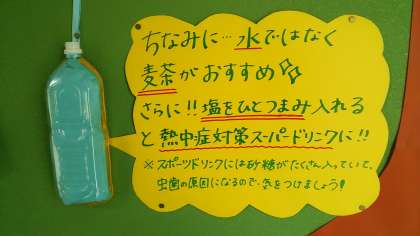 ちなみに…水ではなく
麦茶がおすすめ
さらに!!塩をひとつまみ入れる
と熱中症対策スーパードリンクに!!
※スポーツドリンクには砂糖がたくさん入っていて、
虫歯の原因になるので、気をつけましょう!